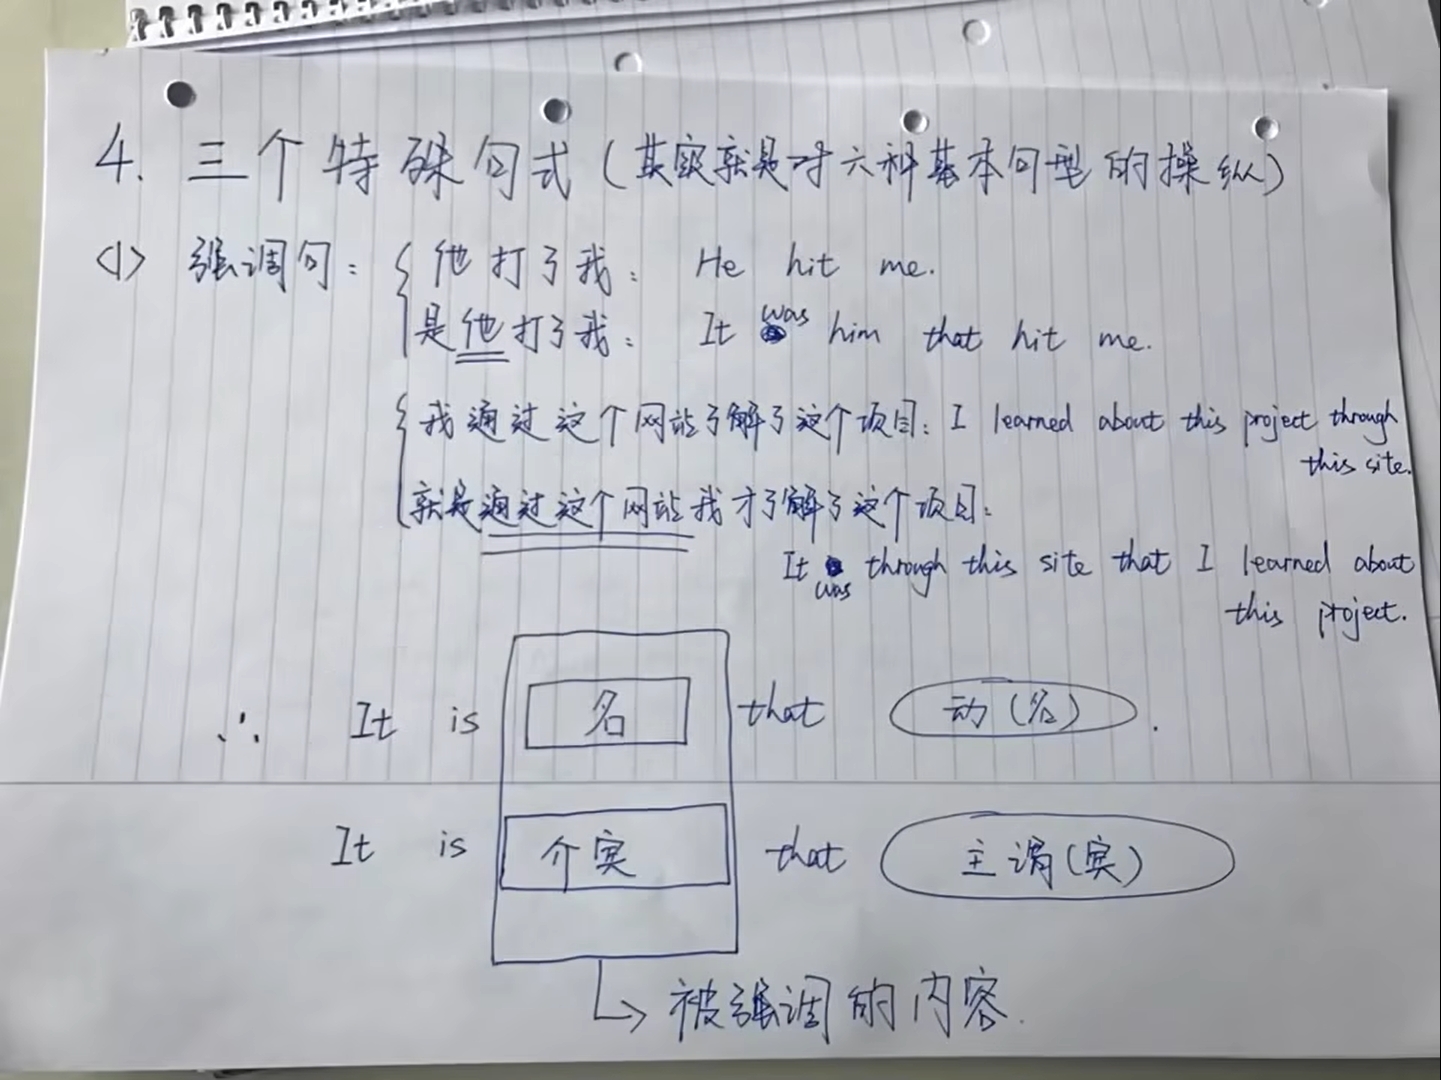 4. 三个特殊句式(其实就是对六种基本句型的操纵)
<1> 强调句: { 他打了我: He hit me.
是他打了我: It was him that hit me.
{ 我通过这个网站了解了这个项目: I learned about this project through
this site.
就是通过这个网站我才了解了这个项目:
It was through this site that I learned about
this project.
∴ It is 名 that 动(名).
It is 介宾 that 主谓(宾)
被强调的内容.